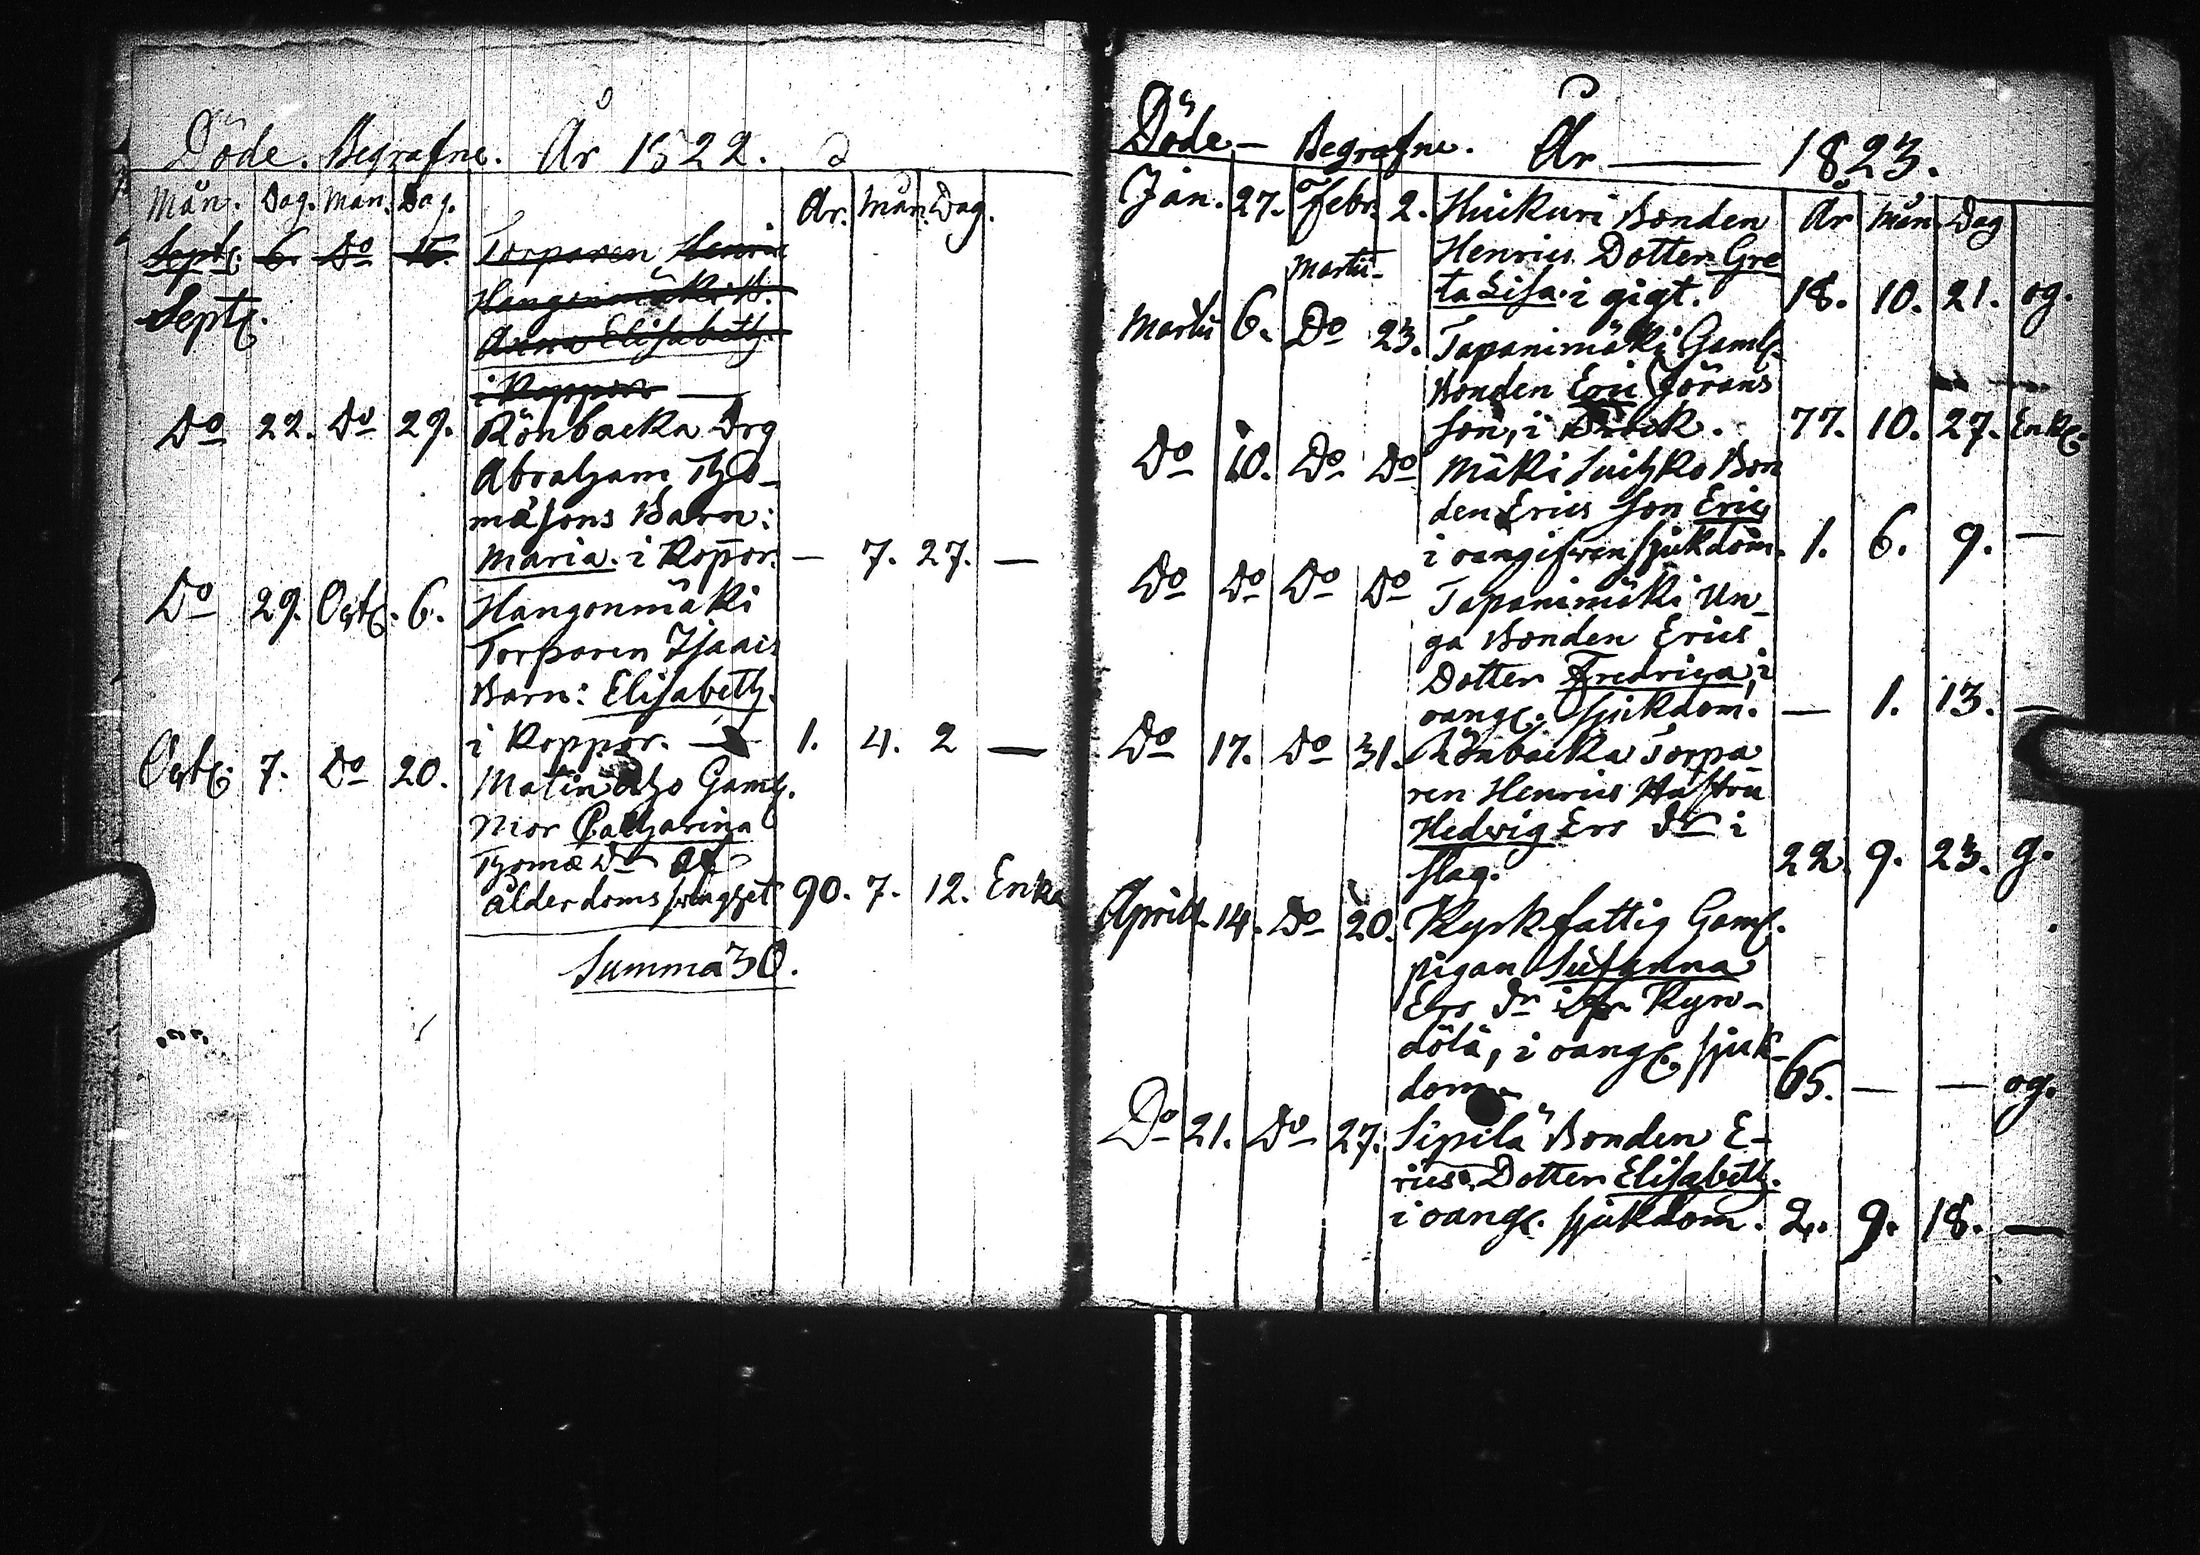 Döde. Begrafne. År 1822.
Mån. Dag. Mån. Dag. År. Mån. Dag.
Septr. 6. Do 15. Torparen Henric
Septr. Hangonmäki H.
Anna Elisabeth.
i koppor —
Do 22. Do 29. Rönbacka Drg
Abraham Tho-
mäsons Barn:
Maria. i koppor. — 7. 27. —
Do 29. Octr. 6. Hangonmäki
Torparen Isaacs
Barn: Elisabeth.
i koppor. — 1. 4. 2 —
Octr. 7. Do 20. Matin Aho Gaml.
Mor Catharina
Thomæ Dr af
ålderdoms swaghet 90. 7. 12. Enka
Summa 30.
Döde — Begrafne. År — 1823.
Jan. 27. Febr. 2. Huikuri Bonden År Mån. Dag
Henrics Dotter Gre
ta Lisa. i gigt. 18. 10. 21. og.
Martii 6. Martii Do 23. Tapanimäki Gaml.
Bonden Eric Jörans
Son, i 77. 10. 27. Enkl.
Do 10. Do Do Mäki Luihko Bon
den Erics Son Eric
i oangifwen sjukdom. 1. 6. 9. —
Do Do Do Do Tapanimäki Un-
ga Bonden Erics
Dotter Fredrica, i
oang. sjukdom. — 1. 13. —
Do 17. Do 31. Rönbacka Torpa
ren Henrics Hustru
Hedwig Ers Dr i
slag. 22. 9. 23. g.
Aprill 14. Do 20. Kyrkfattig Gaml.
pigan Susanna
Ers Dr ifr. Kyn-
dölä, i oang. sjuk-
dom 65. — — og.
Do 21. Do 27. Sipilä Bonden E-
rics Dotter Elisabeth.
i oang. sjukdom. 2. 9. 18. —